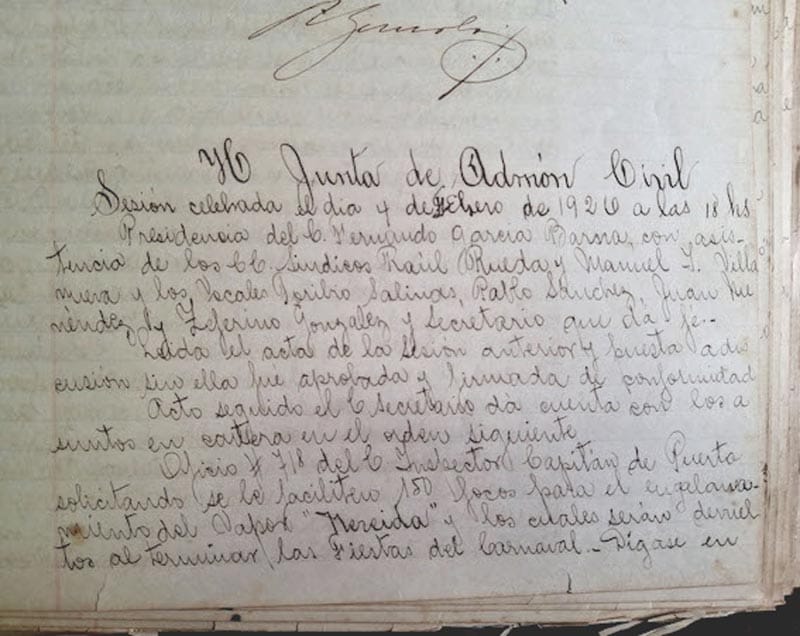 H Junta de Admón Civil
Sesión celebrada el dia 4 de Febrero de 1926 a las 18 hs
Presidencia del C. Fernando Garcia Barna, con asis-
tencia de los CC. Sindicos Raúl Rueda y Manuel J. Villa
nueva y los Vocales Toribio Salinas, Pablo Sanchez, Juan Me
néndez y Zeferino Gonzalez y Secretario que dá fe.-
Leida el acta de la sesión anterior y puesta a dis
cusión sin ella fué aprobada y firmada de conformidad
Acto seguido el C Secretario dá cuenta con los a
suntos en cartera en el orden siguiente
Oficio # 718 del C Inspector Capitán de Puerto
solicitando se le faciliten 150 focos para el engalana
miento del Vapor "Nereida" y los cuales serán devuel
tos al terminar las Fiestas del Carnaval.- Digase en